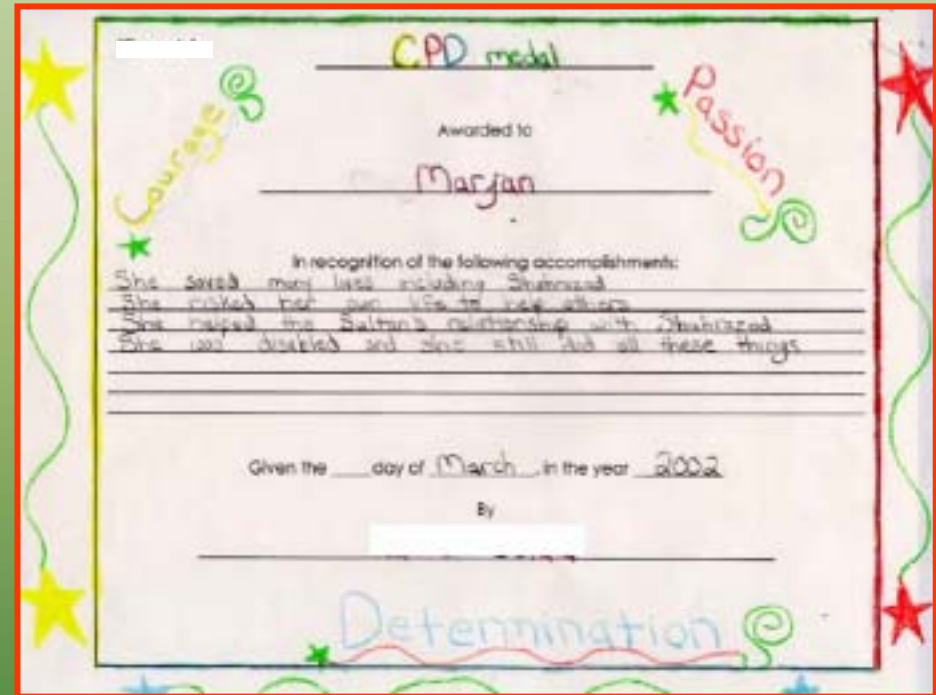 CPD medal
Courage
Passion
Awarded to
Marjan
In recognition of the following accomplishments:
She saved many lives including Shahrazad
She risked her own life to help others
She helped the Sultan's relationship with Shahrazad
She was disabled and she still did all these things
Given the ___ day of March, in the year 2002
By
Determination